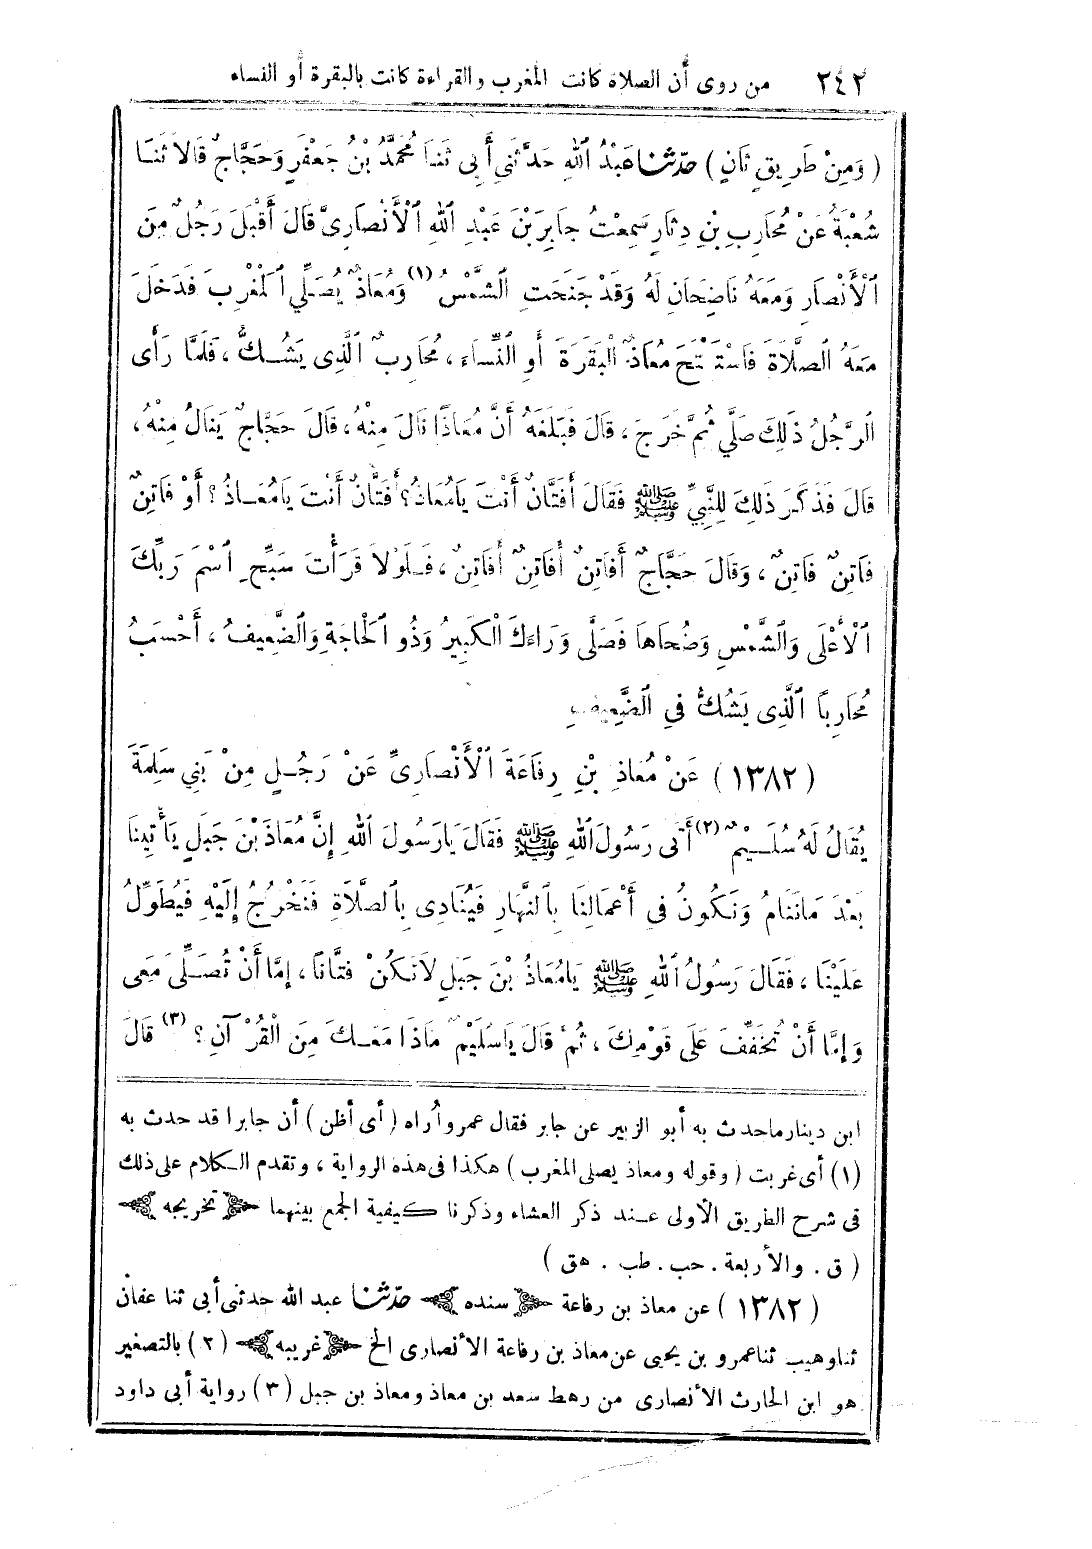 ٢٤٢ من روى أن الصلاة كانت المغرب والقراءة كانت بالبقرة أو النساء
( وَمِنْ طَرِيقٍ ثَانٍ ) حَدَّثَنَا عَبْدُ اللهِ حَدَّثَنِي أَبِي ثَنَا مُحَمَّدُ بْنُ جَعْفَرٍ وَحَجَّاجٌ قَالَا ثَنَا
شُعْبَةُ عَنْ مُحَارِبِ بْنِ دِثَارٍ سَمِعْتُ جَابِرَ بْنَ عَبْدِ اللهِ الْأَنْصَارِىَّ قَالَ أَقْبَلَ رَجُلٌ مِنَ
الْأَنْصَارِ وَمَعَهُ نَاضِحَانِ لَهُ وَقَدْ جَنَحَتِ الشَّمْسُ (١) وَمُعَاذٌ يُصَلِّي الْمَغْرِبَ فَدَخَلَ
مَعَهُ الصَّلَاةَ فَاسْتَفْتَحَ مُعَاذٌ الْبَقَرَةَ أَوِ النِّسَاءَ ، مُحَارِبٌ الَّذِى يَشُكُّ ، فَلَمَّا رَأَى
الرَّجُلُ ذَلِكَ صَلَّى ثُمَّ خَرَجَ ، قَالَ فَبَلَغَهُ أَنَّ مُعَاذًا نَالَ مِنْهُ ، قَالَ حَجَّاجٌ يَنَالُ مِنْهُ ،
قَالَ فَذَكَرَ ذَلِكَ لِلنَّبِيِّ ﷺ فَقَالَ أَفَتَّانٌ أَنْتَ يَامُعَاذُ ؟ أَفَتَّانٌ أَنْتَ يَامُعَاذُ ؟ أَوْ فَاتِنٌ
فَاتِنٌ فَاتِنٌ ، وَقَالَ حَجَّاجٌ أَفَاتِنٌ أَفَاتِنٌ أَفَاتِنٌ ، فَلَوْلَا قَرَأْتَ سَبِّحِ اسْمَ رَبِّكَ
الْأَعْلَى وَالشَّمْسِ وَضُحَاهَا فَصَلَّى وَرَاءَكَ الْكَبِيرُ وَذُو الْحَاجَةِ وَالضَّعِيفُ ، أَحْسَبُ
مُحَارِبًا الَّذِى يَشُكُّ فِي الضَّعِيفِ
( ١٣٨٢ ) عَنْ مُعَاذِ بْنِ رِفَاعَةَ الْأَنْصَارِىِّ عَنْ رَجُلٍ مِنْ بَنِي سَلِمَةَ
يُقَالُ لَهُ سُلَيْمٌ (٢) أَتَى رَسُولَ اللهِ ﷺ فَقَالَ يَارَسُولَ اللهِ إِنَّ مُعَاذَ بْنَ جَبَلٍ يَأْتِينَا
بَعْدَ مَانَنَامُ وَنَكُونُ فِي أَعْمَالِنَا بِالنَّهَارِ فَيُنَادِى بِالصَّلَاةِ فَنَخْرُجُ إِلَيْهِ فَيُطَوِّلُ
عَلَيْنَا ، فَقَالَ رَسُولُ اللهِ ﷺ يَامُعَاذُ بْنَ جَبَلٍ لَا تَكُنْ فَتَّانًا ، إِمَّا أَنْ تُصَلِّىَ مَعِى
وَإِمَّا أَنْ تُخَفِّفَ عَلَى قَوْمِكَ ، ثُمَّ قَالَ يَاسُلَيْمُ مَاذَا مَعَكَ مِنَ الْقُرْآنِ ؟ (٣) قَالَ
ابن دينار ماحدث به أبو الزبير عن جابر فقال عمرو أراه ( أى أظن ) أن جابرا قد حدث به
(١) أى غربت ( وقوله ومعاذ يصلى المغرب ) هكذا فى هذه الرواية ، وتقدم الكلام على ذلك
فى شرح الطريق الأولى عند ذكر العشاء وذكرنا كيفية الجمع بينهما تخريجه
( ق . والأربعة . حب . طب . هق )
( ١٣٨٢ ) عن معاذ بن رفاعة سنده حدّثنا عبد الله حدثنى أبى ثنا عفان
ثنا وهيب ثنا عمرو بن يحيى عن معاذ بن رفاعة الأنصارى الخ غريبه ( ٢ ) بالتصغير
هو ابن الحارث الأنصارى من رهط سعد بن معاذ ومعاذ بن جبل ( ٣ ) رواية أبى داود